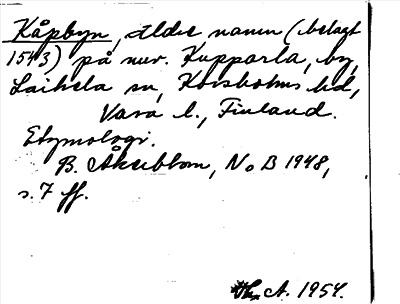 Kåpbyn, äldre namn (belagt
1543) på nuv. Kupparla, by,
Laihela sn, Korsholms hd,
Vasa l., Finland.
Etymologi.
B. Åkerblom, NoB 1948,
s. 7 ff.
A. 1954.